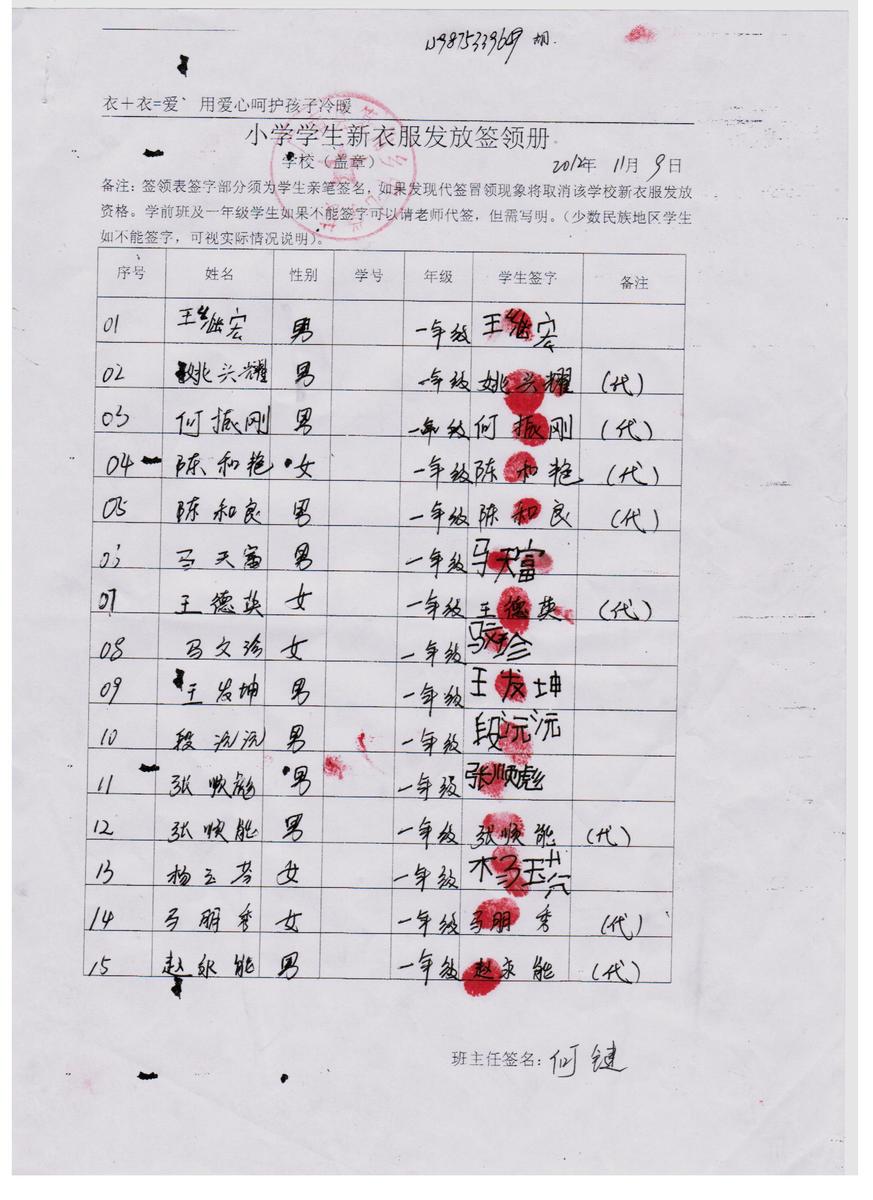 衣+衣=爱` 用爱心呵护孩子冷暖
小学学生新衣服发放签领册
学校（盖章） 2012年 11月 9日
备注：签领表签字部分须为学生亲笔签名，如果发现代签冒领现象将取消该学校新衣服发放
资格。学前班及一年级学生如果不能签字可以请老师代签，但需写明。（少数民族地区学生
如不能签字，可视实际情况说明）。
序号 姓名 性别 学号 年级 学生签字 备注
01 王继宏 男 一年级 王继宏
02 姚兴耀 男 一年级 姚兴耀 （代）
03 何振刚 男 一年级 何振刚 （代）
04 陈和艳 女 一年级 陈和艳 （代）
05 陈和良 男 一年级 陈和良 （代）
马天富 男 一年级 马天富
07 王德英 女 一年级 王德英 （代）
08 马文珍 女 一年级 马文珍
09 王发坤 男 一年级 王发坤
10 段沅沅 男 一年级 段沅沅
11 张顺彪 男 一年级 张顺彪
12 张顺能 男 一年级 张顺能 （代）
13 杨玉芬 女 一年级 杨玉芬
14 马明秀 女 一年级 马明秀 （代）
15 赵永能 男 一年级 赵永能 （代）
班主任签名：何键